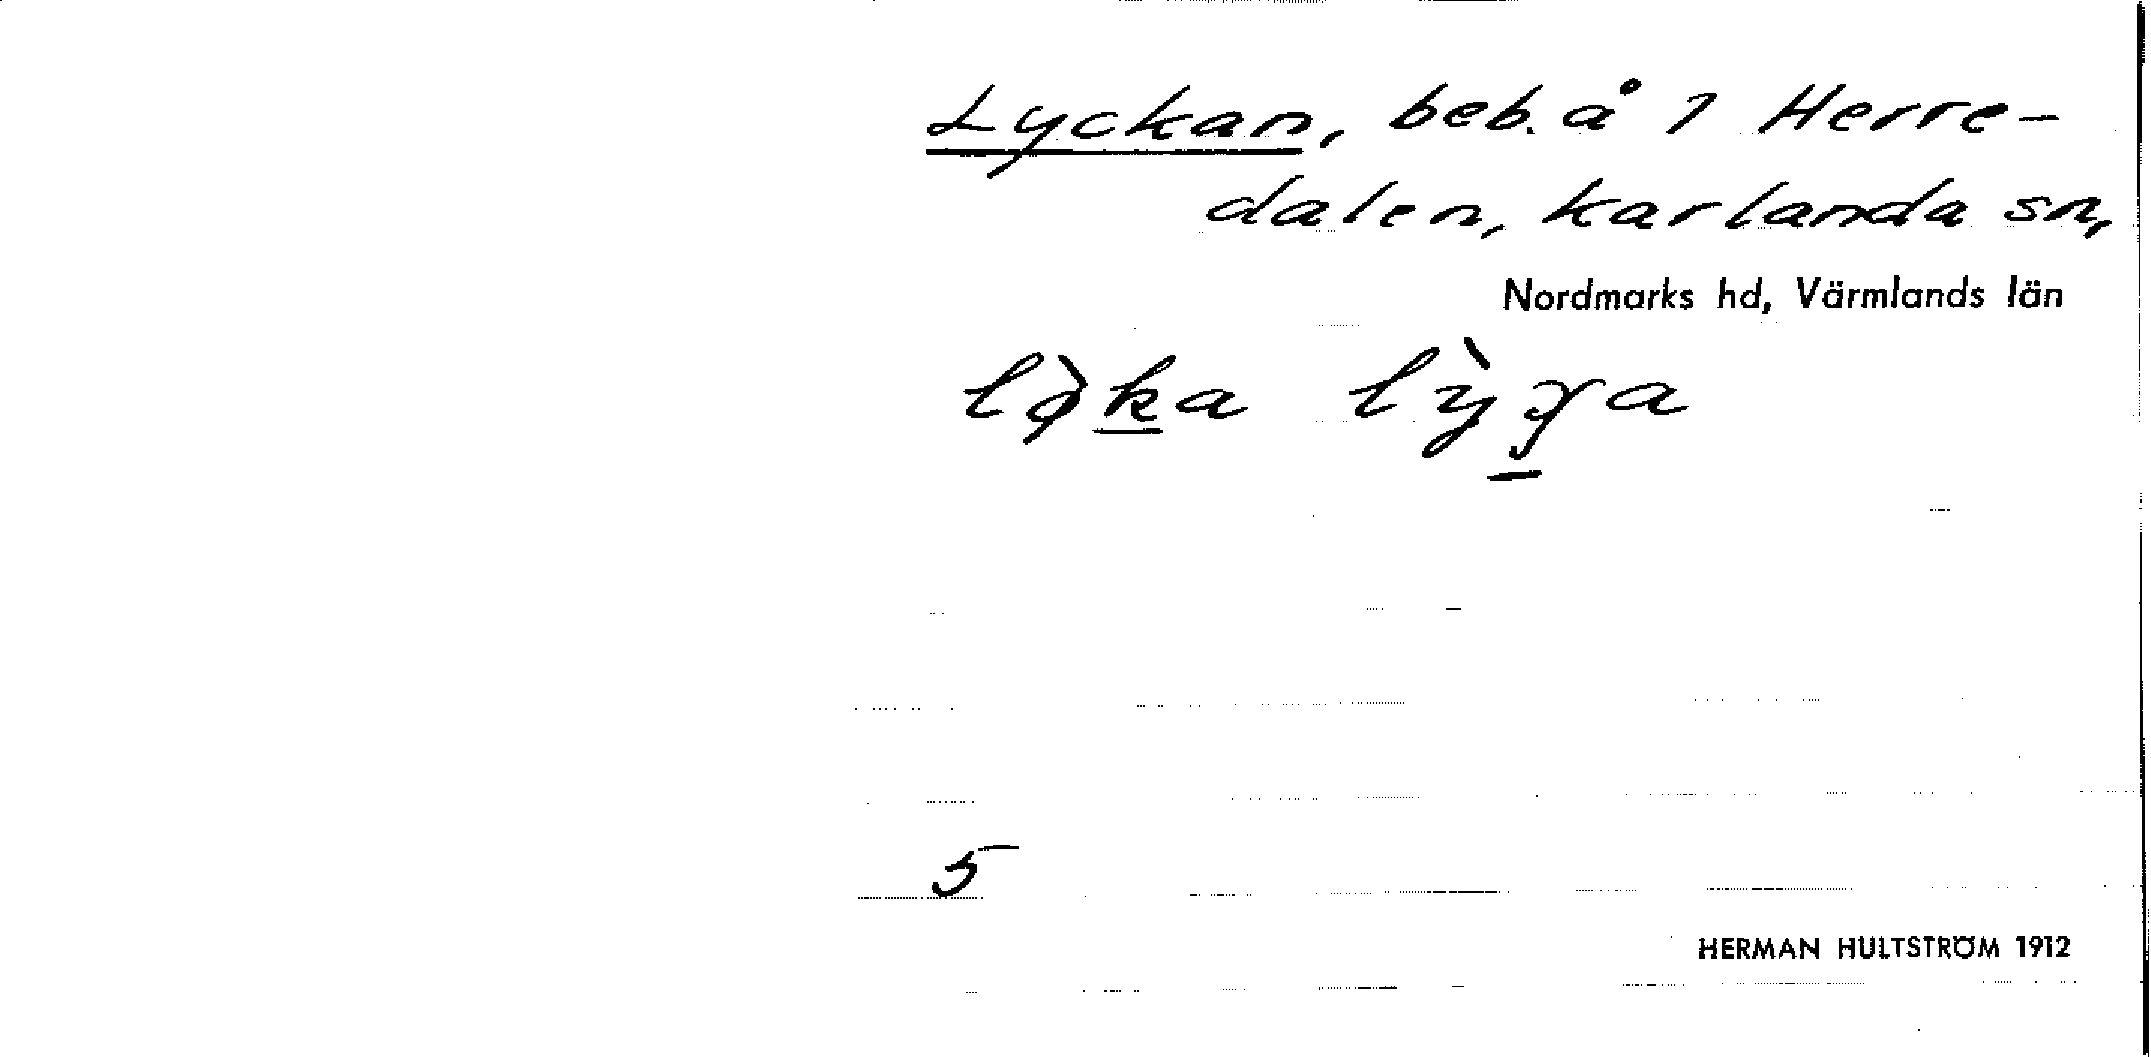 Lyckan, beb. å 1 Herre-
dalen, Karlanda sn,
Nordmarks hd, Värmlands län
5
HERMAN HULTSTRÖM 1912